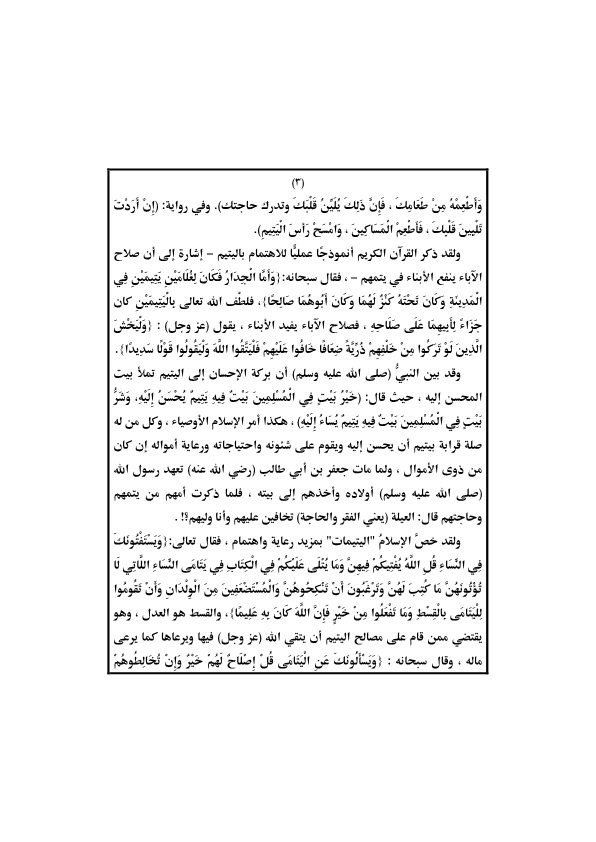 (٣)
وَأَطْعِمْهُ مِنْ طَعَامِكَ ، فَإِنَّ ذَلِكَ يُلَيِّنُ قَلْبَكَ وتدرك حاجتك). وفي رواية: (إِنْ أَرَدْتَ
تَلْيِينَ قَلْبِكَ ، فَأَطْعِمْ الْمَسَاكِينَ ، وَامْسَحْ رَأسَ الْيَتِيمِ).
ولقد ذكر القرآن الكريم أنموذجًا عمليًّا للاهتمام باليتيم – إشارة إلى أن صلاح
الآباء ينفع الأبناء في يتمهم – ، فقال سبحانه:{وَأَمَّا الْجِدَارُ فَكَانَ لِغُلَامَيْنِ يَتِيمَيْنِ فِي
الْمَدِينَةِ وَكَانَ تَحْتَهُ كَنْزٌ لَهُمَا وَكَانَ أَبُوهُمَا صَالِحًا}، فلطّف الله تعالى بالْيَتِيمَيْنِ كان
جَزَاءً لِأَبِيهِمَا عَلَى صَلَاحِهِ ، فصلاح الآباء يفيد الأبناء ، يقول (عز وجل) : {وَلْيَخْشَ
الَّذِينَ لَوْ تَرَكُوا مِنْ خَلْفِهِمْ ذُرِّيَّةً ضِعَافًا خَافُوا عَلَيْهِمْ فَلْيَتَّقُوا اللَّهَ وَلْيَقُولُوا قَوْلًا سَدِيدًا}.
وقد بين النبيُّ (صلى الله عليه وسلم) أن بركة الإحسان إلى اليتيم تملأ بيت
المحسن إليه ، حيث قال: (خَيْرُ بَيْتٍ فِي الْمُسْلِمِينَ بَيْتٌ فِيهِ يَتِيمٌ يُحْسَنُ إِلَيْهِ، وَشَرُّ
بَيْتٍ فِي الْمُسْلِمِينَ بَيْتٌ فِيهِ يَتِيمٌ يُسَاءُ إِلَيْهِ) ، هكذا أمر الإسلام الأوصياء ، وكل من له
صلة قرابة بيتيم أن يحسن إليه ويقوم على شئونه واحتياجاته ورعاية أمواله إن كان
من ذوى الأموال ، ولما مات جعفر بن أبي طالب (رضي الله عنه) تعهد رسول الله
(صلى الله عليه وسلم) أولاده وأخذهم إلى بيته ، فلما ذكرت أمهم من يتمهم
وحاجتهم قال: العيلة (يعني الفقر والحاجة) تخافين عليهم وأنا وليهم؟! .
ولقد خصَّ الإسلامُ "اليتيمات" بمزيد رعاية واهتمام ، فقال تعالى:{وَيَسْتَفْتُونَكَ
فِي النِّسَاءِ قُلِ اللَّهُ يُفْتِيكُمْ فِيهِنَّ وَمَا يُتْلَى عَلَيْكُمْ فِي الْكِتَابِ فِي يَتَامَى النِّسَاءِ اللَّاتِي لَا
تُؤْتُونَهُنَّ مَا كُتِبَ لَهُنَّ وَتَرْغَبُونَ أَنْ تَنْكِحُوهُنَّ وَالْمُسْتَضْعَفِينَ مِنَ الْوِلْدَانِ وَأَنْ تَقُومُوا
لِلْيَتَامَى بِالْقِسْطِ وَمَا تَفْعَلُوا مِنْ خَيْرٍ فَإِنَّ اللَّهَ كَانَ بِهِ عَلِيمًا}، والقسط هو العدل ، وهو
يقتضي ممن قام على مصالح اليتيم أن يتقي الله (عز وجل) فيها ويرعاها كما يرعى
ماله ، وقال سبحانه : {وَيَسْأَلُونَكَ عَنِ الْيَتَامَى قُلْ إِصْلَاحٌ لَهُمْ خَيْرٌ وَإِنْ تُخَالِطُوهُمْ